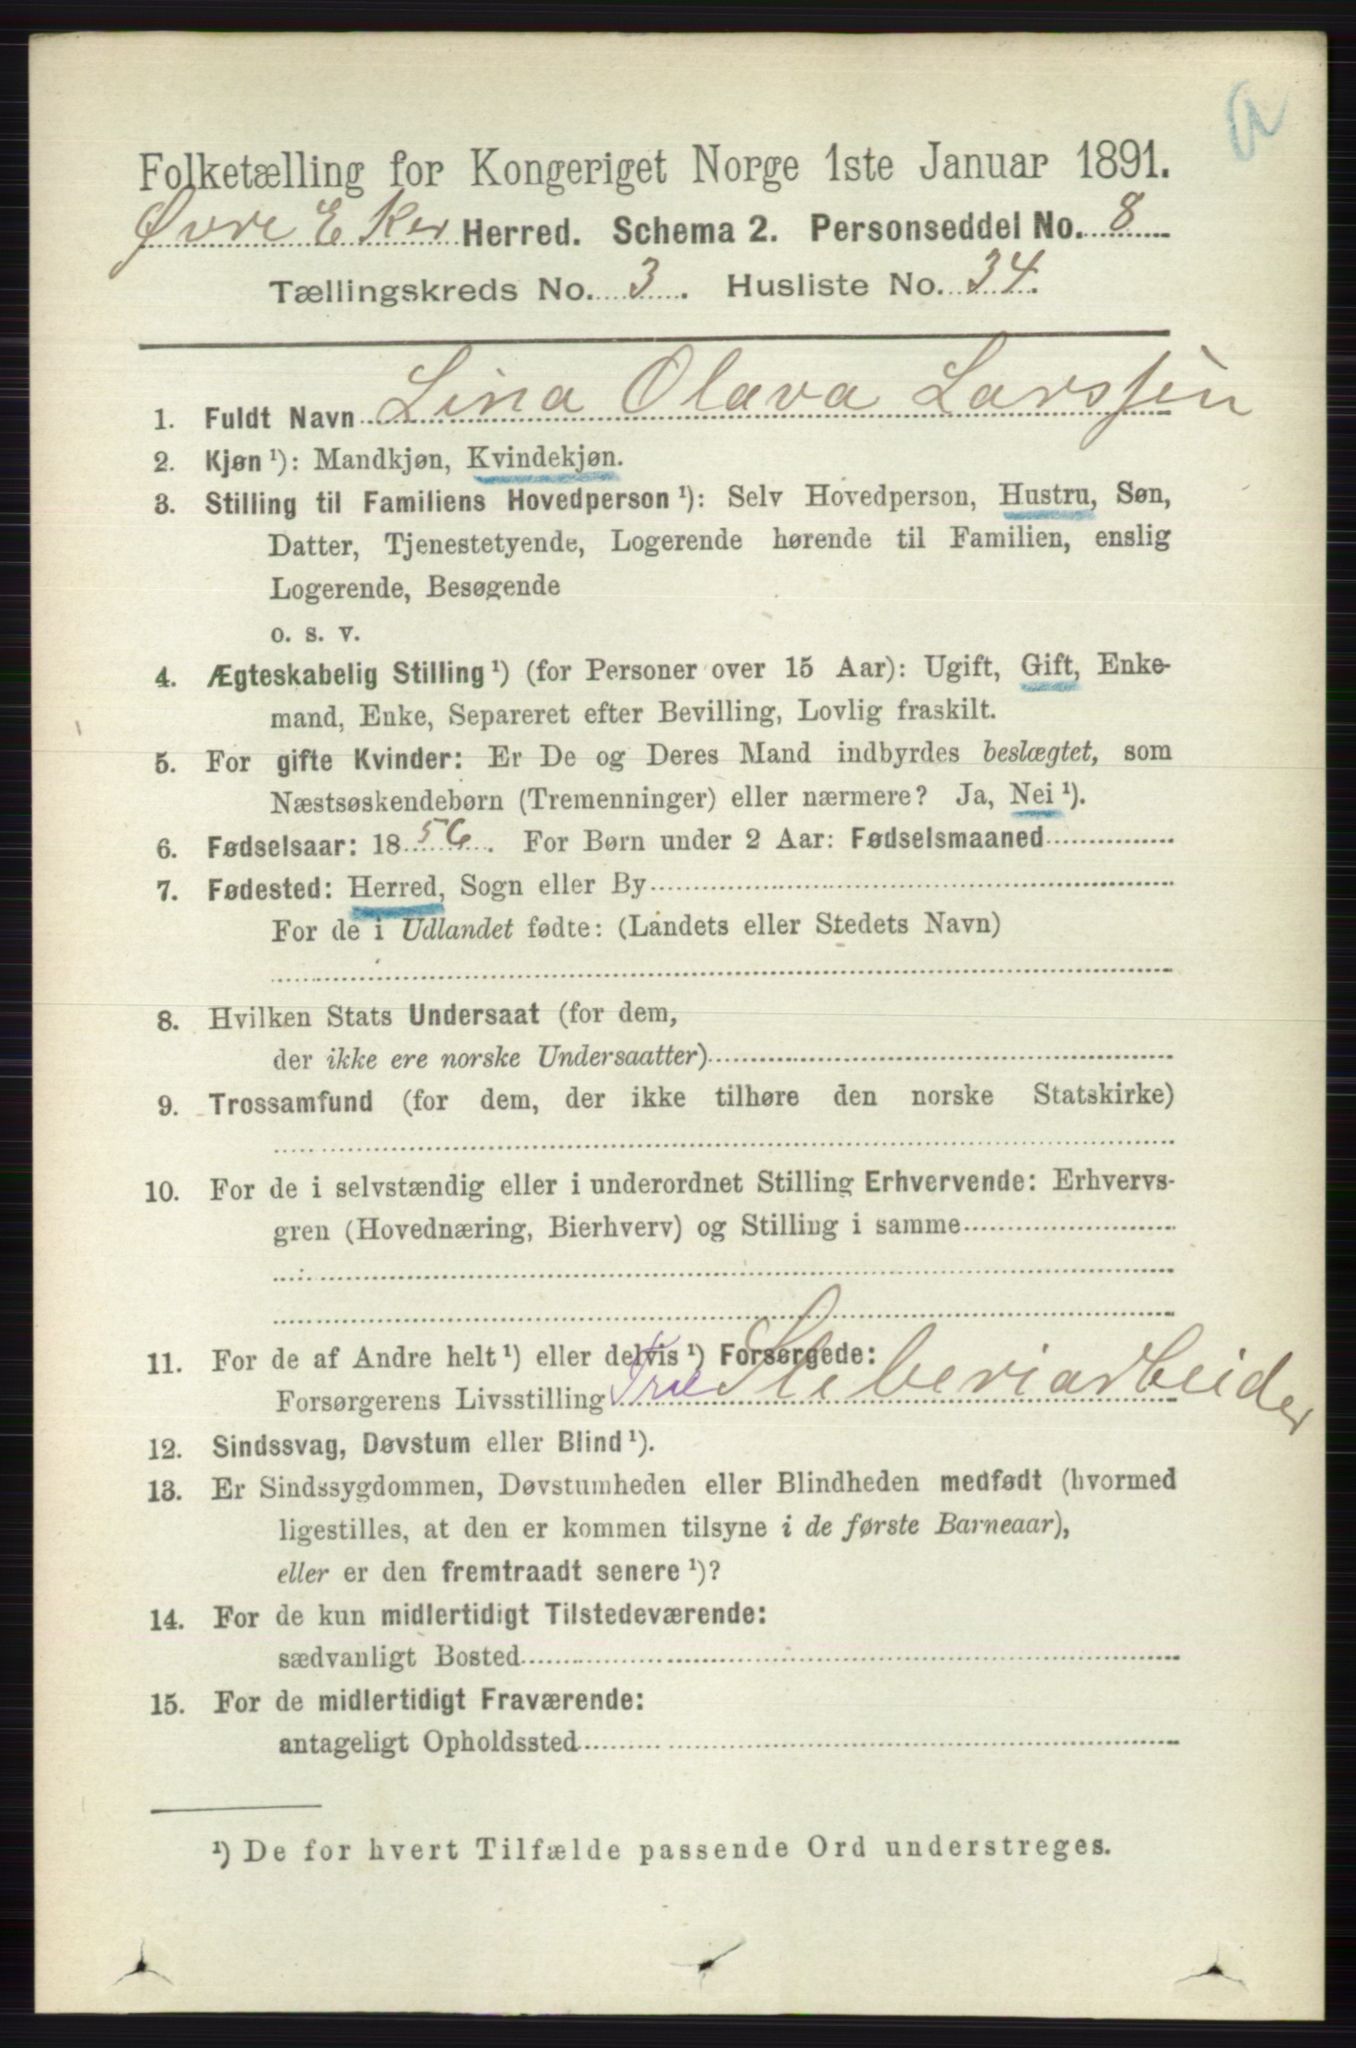 a
Folketælling for Kongeriget Norge 1ste Januar 1891.
Øvre Eker Herred. Schema 2. Personseddel No. 8
Tællingskreds No. 3. Husliste No. 34.
1. Fuldt Navn Lina Olava Larssen
2. Kjøn ¹): Mandkjøn, Kvindekjøn.
3. Stilling til Familiens Hovedperson ¹): Selv Hovedperson, Hustru, Søn,
Datter, Tjenestetyende, Logerende hørende til Familien, enslig
Logerende, Besøgende
o. s. v.
4. Ægteskabelig Stilling ¹) (for Personer over 15 Aar): Ugift, Gift, Enke-
mand, Enke, Separeret efter Bevilling, Lovlig fraskilt.
5. For gifte Kvinder: Er De og Deres Mand indbyrdes beslægtet, som
Næstsøskendebørn (Tremenninger) eller nærmere? Ja, Nei ¹).
6. Fødselsaar: 1856. For Børn under 2 Aar: Fødselsmaaned
7. Fødested: Herred, Sogn eller By
For de i Udlandet fødte: (Landets eller Stedets Navn)
8. Hvilken Stats Undersaat (for dem,
der ikke ere norske Undersaatter)
9. Trossamfund (for dem, der ikke tilhøre den norske Statskirke)
10. For de i selvstændig eller i underordnet Stilling Erhvervende: Erhvervs-
gren (Hovednæring, Bierhverv) og Stilling i samme
11. For de af Andre helt ¹) eller delvis ¹) Forsørgede:
Forsørgerens Livsstilling Træ Sliberiarbeider
12. Sindssvag, Døvstum eller Blind ¹).
13. Er Sindssygdommen, Døvstumheden eller Blindheden medfødt (hvormed
ligestilles, at den er kommen tilsyne i de første Barneaar),
eller er den fremtraadt senere ¹)?
14. For de kun midlertidigt Tilstedeværende:
sædvanligt Bosted
15. For de midlertidigt Fraværende:
antageligt Opholdssted
¹) De for hvert Tilfælde passende Ord understreges.